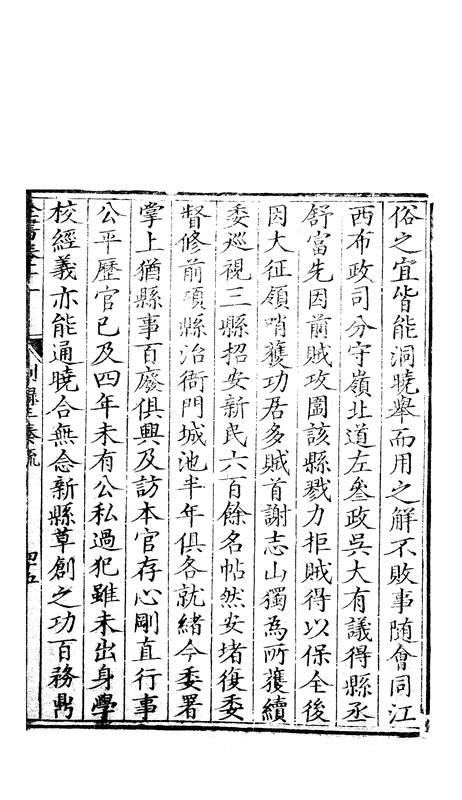 俗之宜皆能洞曉舉而用之解不敗事随會同江
西布政司分守嶺北道左叅政吳大有議得縣丞
舒富先因前賊攻圍該縣戮力拒賊得以保全後
因大征領哨獲功居多賊首謝志山獨為所獲續
委巡視三縣招安新民六百餘名帖然安堵復委
督修前項縣治衙門城池半年俱各就緒今委署
掌上猶縣事百廢俱興及訪本官存心剛直行事
公平歷官已及四年未有公私過犯雖未出身學
校經義亦能通曉合無念新縣草創之功百務鼎
奏疏
四十五